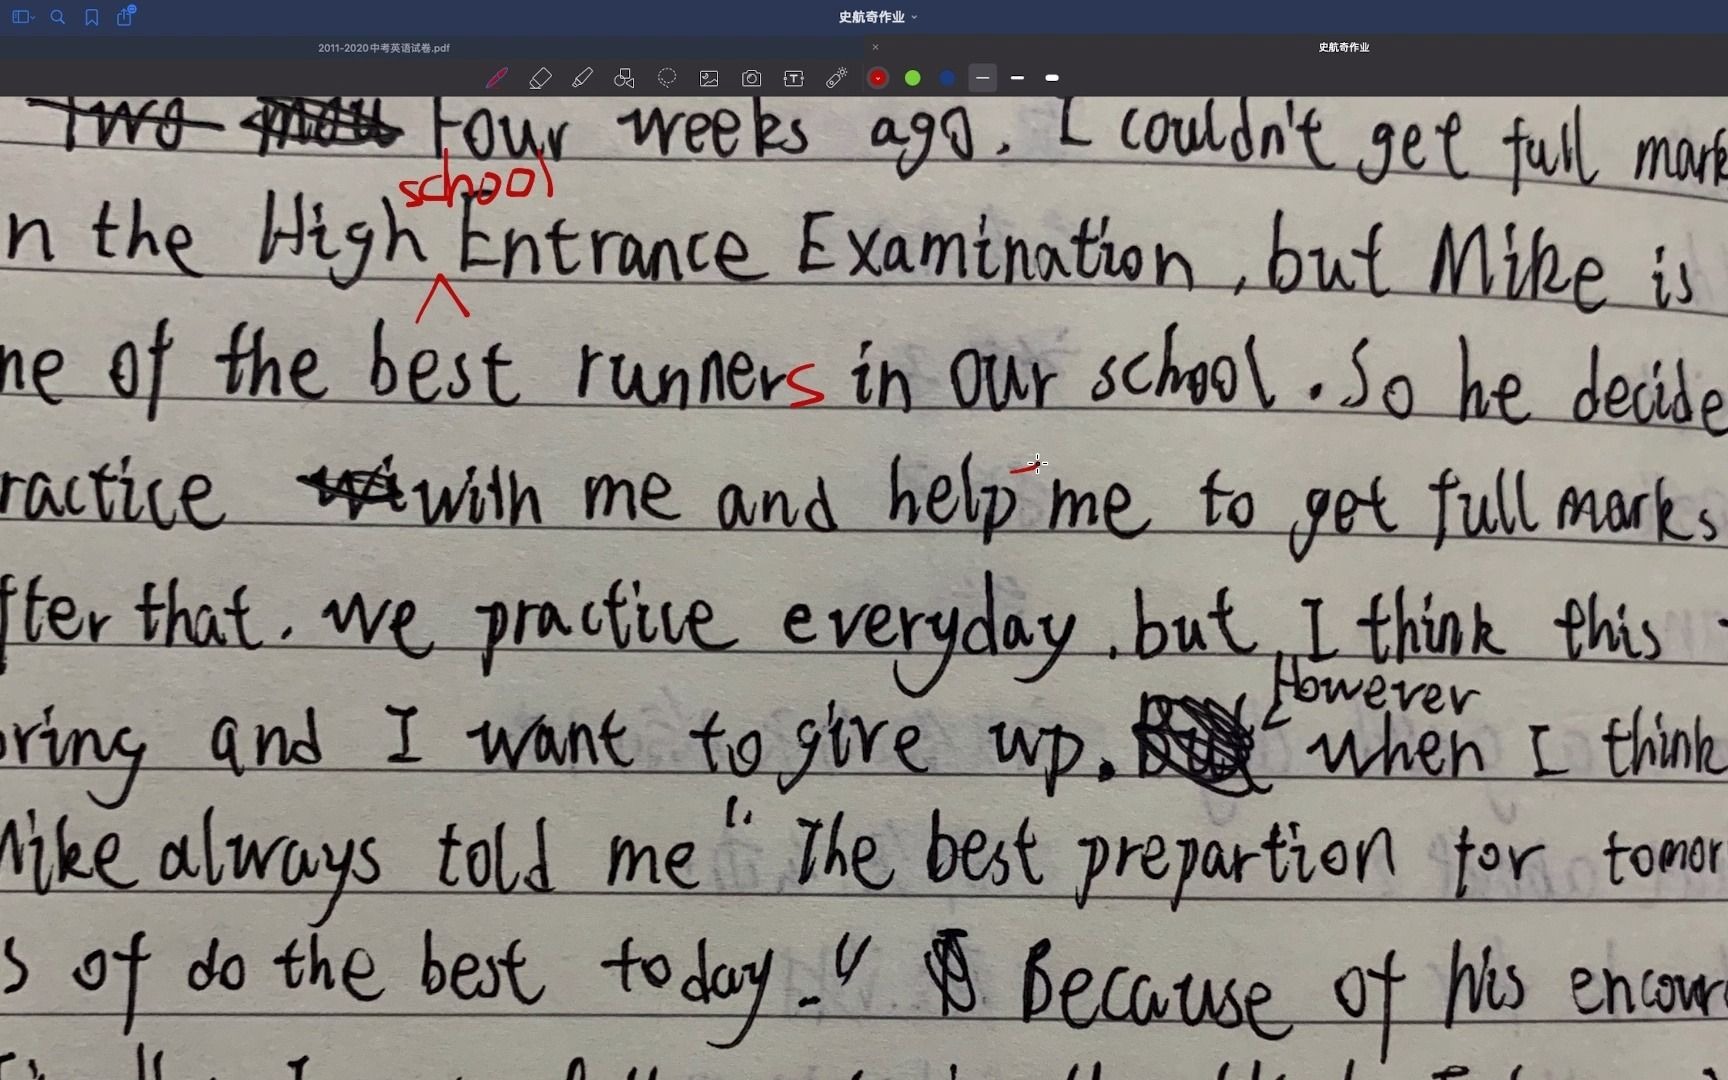 史航奇作业
2011-2020中考英语试卷.pdf
史航奇作业
Two Four weeks ago. I couldn't get full mark
school
n the High Entrance Examination, but Mike is
ne of the best runners in our school. So he decide
ractice with me and help me to get full marks
fter that. We practice everyday, but I think this
However
oring and I want to give up. But when I think
Mike always told me "The best prepartion for tomor
s of do the best today." Because of his encour